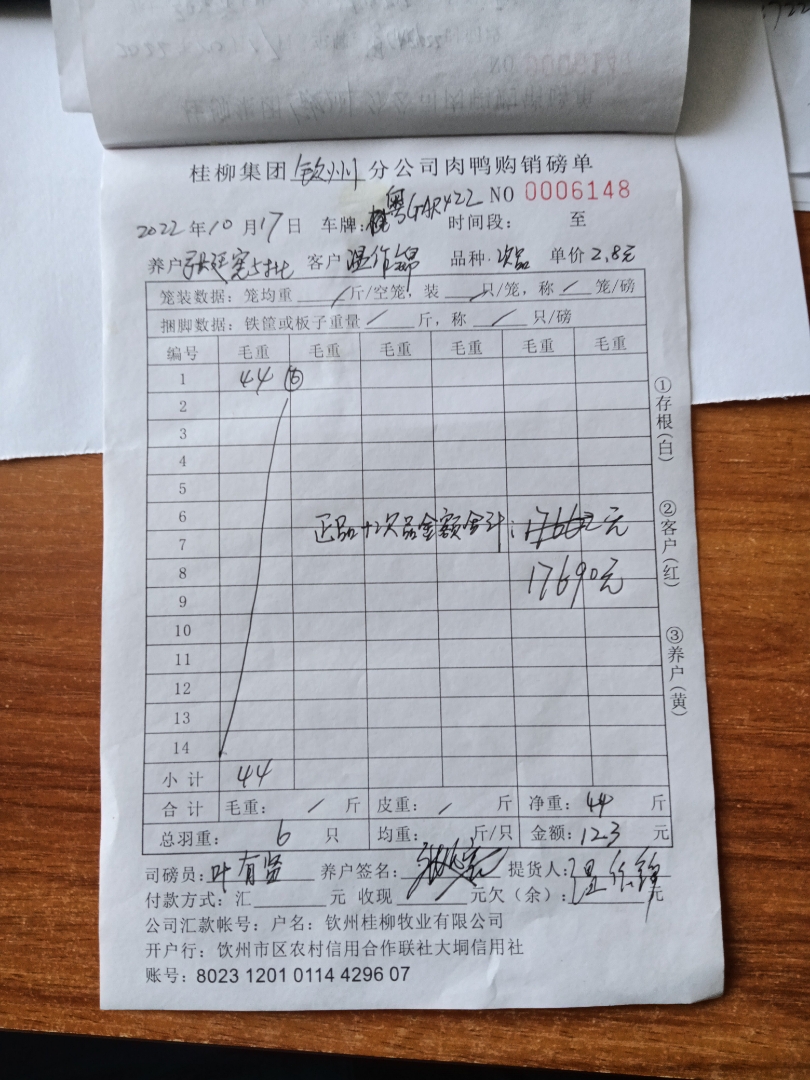 桂柳集团 钦州 分公司肉鸭购销磅单
NO 0006148
2022年10月17日 车牌: 粤GAR422 时间段: 至
养户 客户 温作锦 品种: 次品 单价 2.8元
笼装数据: 笼均重 / 斤/空笼, 装 / 只/笼, 称 / 笼/磅
捆脚数据: 铁筐或板子重量 / 斤, 称 / 只/磅
编号 毛重 毛重 毛重 毛重 毛重 毛重
1 44 ⑥
2
3
4
5
6
正品+次品金额合计: 17662元
7
8 17690元
9
10
11
12
13
14
小计 44
合计 毛重: / 斤 皮重: / 斤 净重: 44 斤
总羽重: 6 只 均重: 斤/只 金额: 123 元
司磅员: 叶有贤 养户签名: 提货人: 温作锦
付款方式: 汇 元 收现 元欠(余): 元
公司汇款帐号: 户名: 钦州桂柳牧业有限公司
开户行: 饮州市区农村信用合作联社大垌信用社
账号: 8023 1201 0114 4296 07
①存根(白)
②客户(红)
③养户(黄)